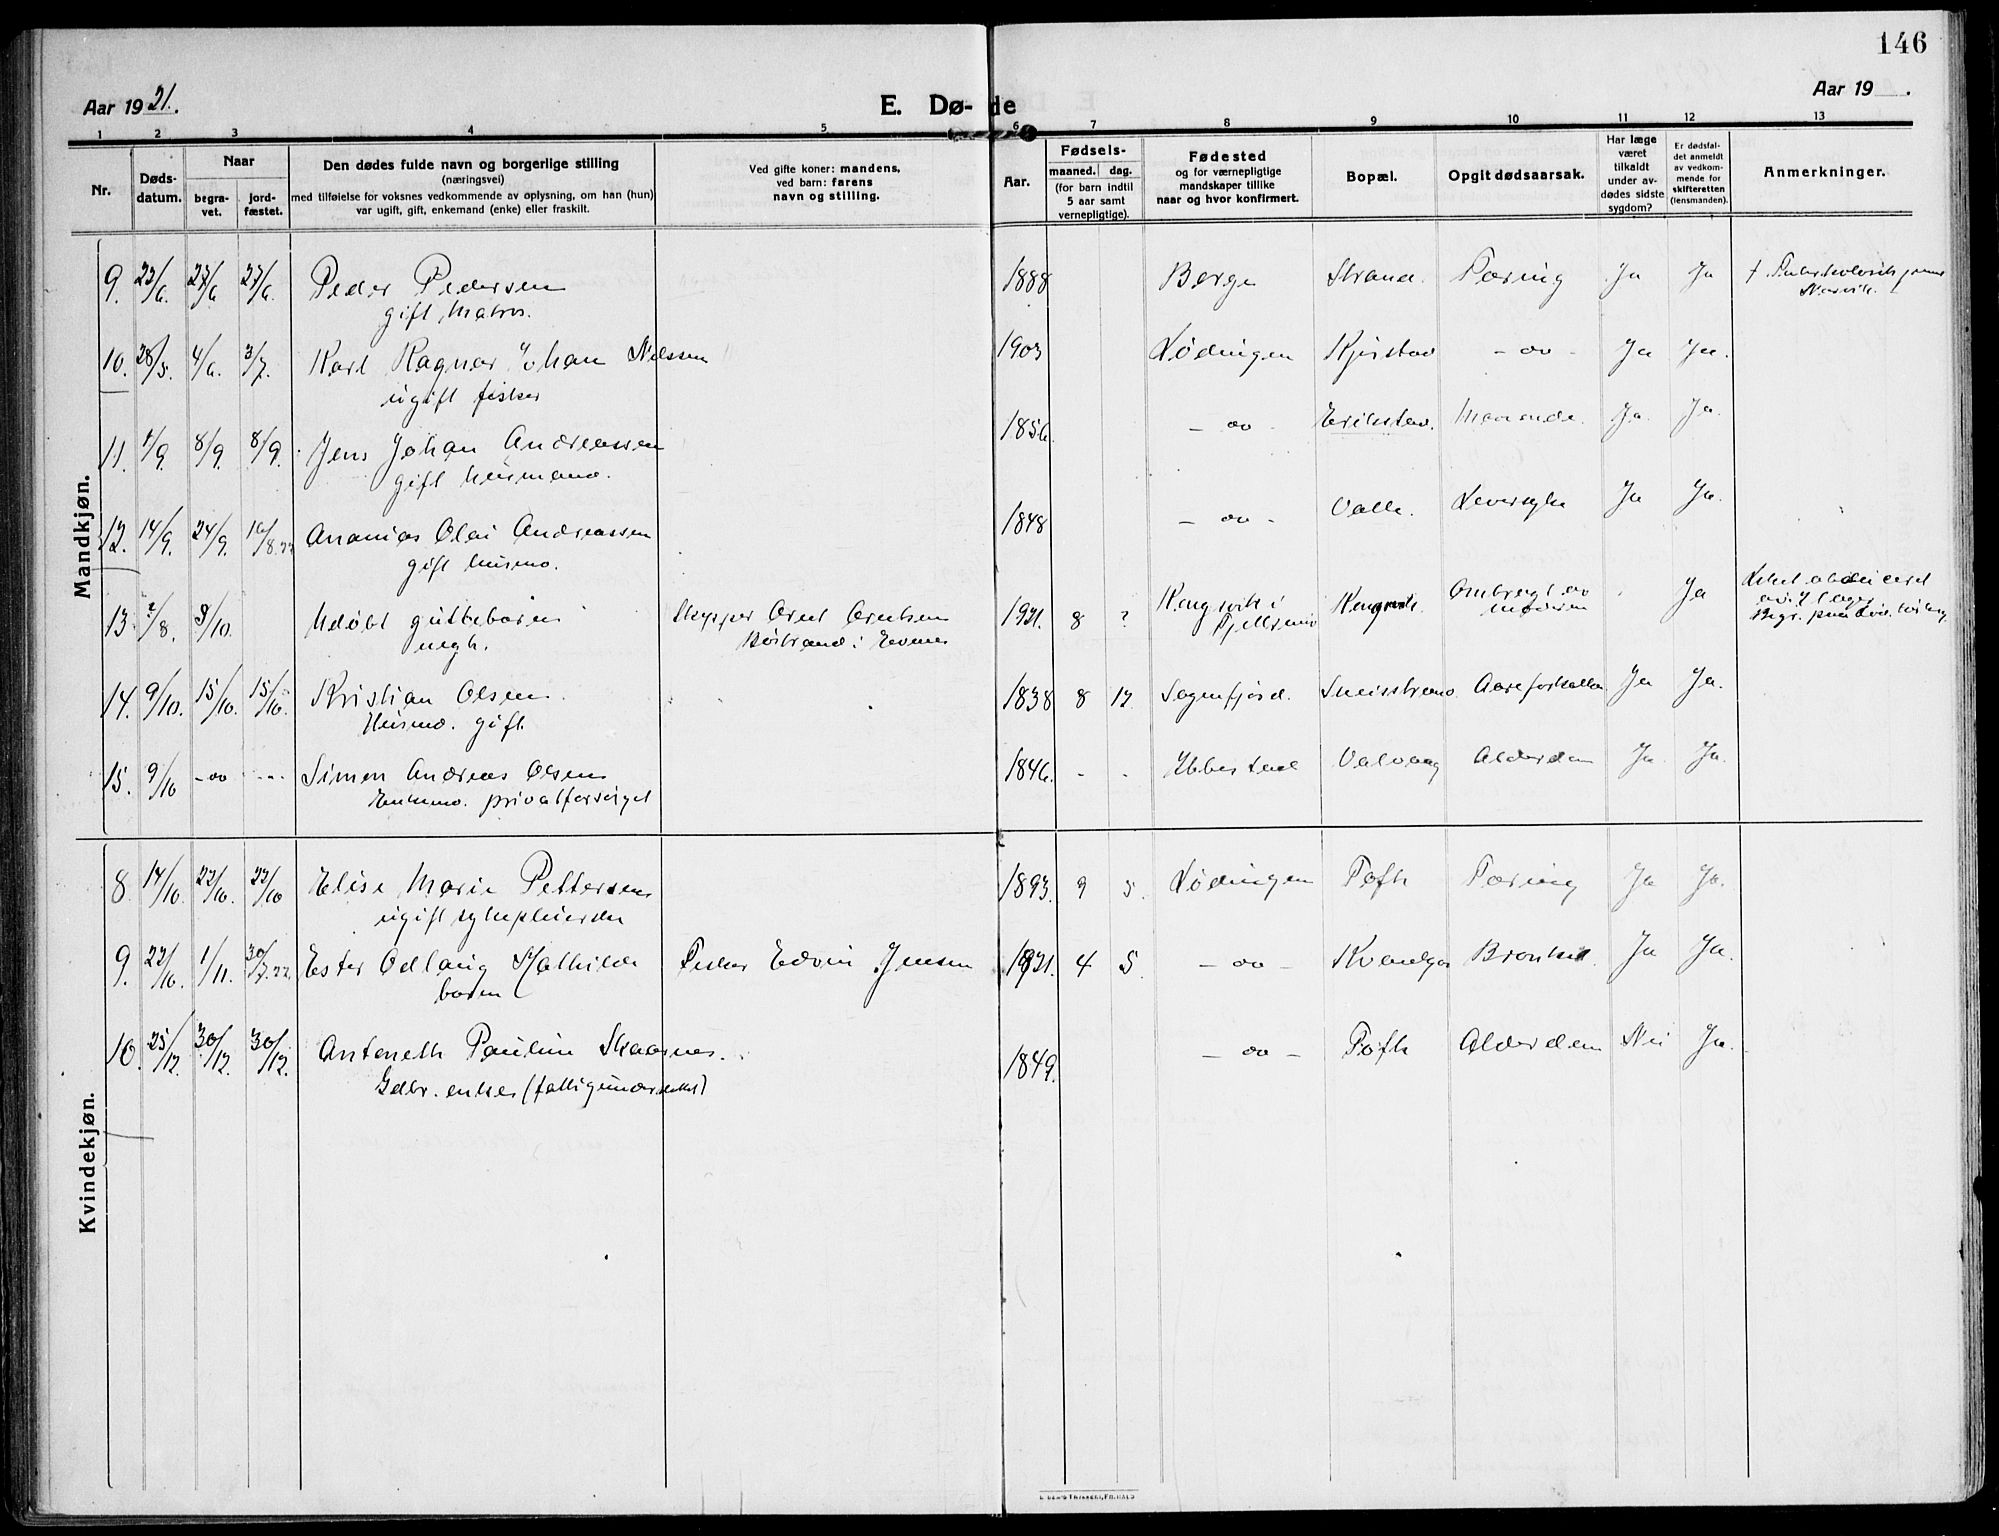 146
Aar 1921.
E. Døde
Aar 19 .
1 2 3 4 5 6 7 8 9 10 11 12 13
Nr.
Døds-
datum.
Naar
begra-
vet.
jord-
fæstet.
Den dødes fulde navn og borgerlige stilling
(næringsvei)
med tilføielse for voksnes vedkommende av oplysning, om han (hun)
var ugift, gift, enkemand (enke) eller fraskilt.
Ved gifte koner: mandens,
ved barn: farens
navn og stilling.
Aar.
Fødsels-
maaned. dag.
(for barn indtil
5 aar samt
vernepligtige).
Fødested
og for værnepligtige
mandskaper tillike
naar og hvor konfirmert.
Bopæl.
Opgit dødsaarsak.
Har læge
været
tilkaldt
under av-
dødes sidste
sygdom?
Er dødsfal-
det anmeldt
av vedkom-
mende for
skifteretten
(lensmanden).
Anmerkninger.
Mandkjøn.
9. 23/6 27/6 27/6 Peder Pedersen 1888 Berge Strand. Tæring Ja Ja
gift, Matros.
10. 28/5. 4/6. 3/7. Karl Ragnar Johan Nilssen 1903 Lødingen Kjerstad - oo - Ja Ja.
ugift fisker
11. 1/9. 8/9. 8/9. Jens Johan Andreassen 1856 - oo - Erikstad. Ja. Ja.
gift husmand.
12. 14/9. 24/9. 16/8.22 Ananias Olai Andreassen 1848 - oo - Valle. Leversyke Ja Ja.
gift husmd.
13. 2/8. 8/10. Udøbt guttebarn Skipper Arnt Arntsen 1921. 8 ? Kongsvik i Kongsvik. Ombragt av Ja
uegte. i Evenes Fjelldal moderen
14. 9/10. 15/10. 15/10. Kristian Olsen 1838 8 12. Sagfjord. Aareforkalkn Ja Ja.
Husmd. gift
15. 9/10 - oo - - - - Simon Andreas Olsen 1846. - - Ibbestad Valvaag Alderdom Ja. Ja.
Enkemd. privatforsørget
Kvindekjøn.
8 14/10. 22/10. 22/10 Elise Marie Pettersen 1893. 9 5. Lødingen Tofte Tæring Ja Ja.
ugift sykepleierske
9. 22/10. 1/11. 30/7.22. Ester Odlaug Mathilde Fisker Edvin Jensen 1921. 4 5. - oo - Bronkit. Ja Ja.
barn
10. 25/12. 30/12. 30/12. Antonette Pauline Skaanes. 1849. - oo - Tofte Alderdom Nei Ja.
Gdbr. enke (fattigunderstøttet)